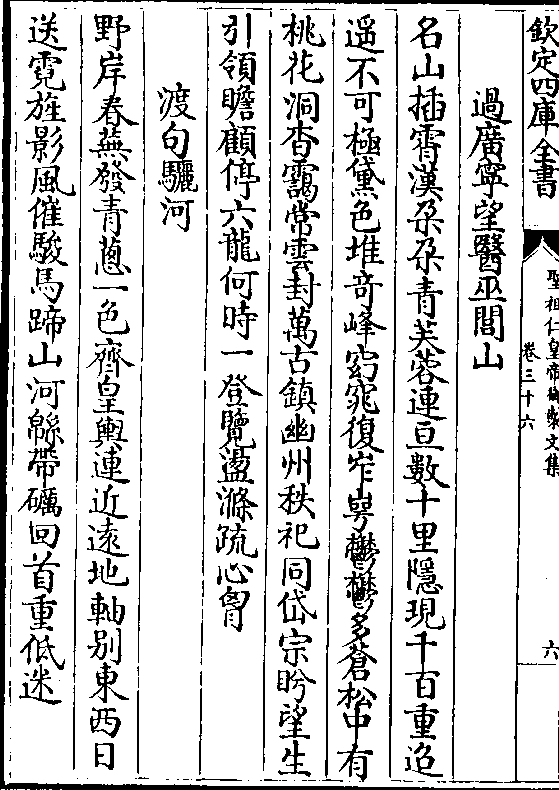 欽定四庫全書
聖祖仁皇帝御製文集
卷三十六
六
過廣寧望醫巫閭山
名山插霄漢朶朶青芙蓉連亘數十里隱現千百重迢
遥不可極黛色堆竒峰窈窕復岝崿鬱鬱多蒼松中有
桃花洞杳靄常雲封萬古鎮幽州秩祀同岱宗盻望生
引領瞻顧停六龍何時一登覽盪滌疏心胷
渡句驪河
野岸春蕪發青葱一色齊皇輿連近遠地軸别東西日
送霓旌影風催駿馬蹄山河緜帶礪回首重低迷